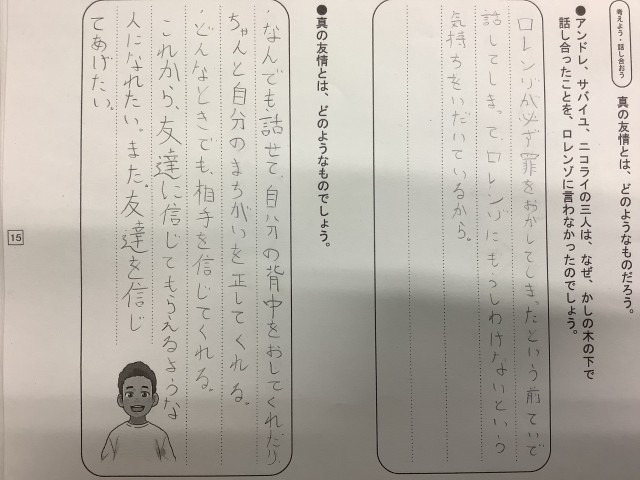 考えよう・話し合おう
真の友情とは、どのようなものだろう。
●アンドレ、サバイユ、ニコライの三人は、なぜ、かしの木の下で
話し合ったことを、ロレンゾに言わなかったのでしょう。
ロレンゾが必ず罪をおかしてしまったという前ていで
話してしまって、ロレンゾにもうしわけないという
気持ちをいだいているから。
●真の友情とは、どのようなものでしょう。
・なんでも話せて、自分の背中をおしてくれたり、
ちゃんと自分のまちがいを正してくれる。
・どんなときでも、相手を信じてくれる。
これから、友達に信じてもらえるような
人になれたい。また、友達を信じ
てあげたい。
15